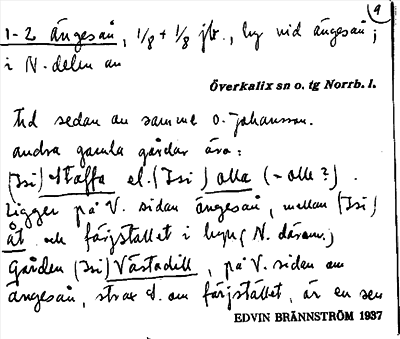 9
1-2 ängeså, 1/8 + 1/8 jbr., by vid ängesåns
i N. delen av
Överkalix sn o. tg Norrb. l.
tid sedan av samme O. Johansson.
Andra gamla gårdar äro:
(Isi) Staffa el. (Isi) olla (~ olle?).
Ligger på V. sidan ängeså, mellan (Isi)
åt och färjstället i byn (N. därom.)
Gården (Isi) Västadill, på V. sidan om
ängeså, strax S. om färjstället, är en sen
EDVIN BRÄNNSTRÖM 1937